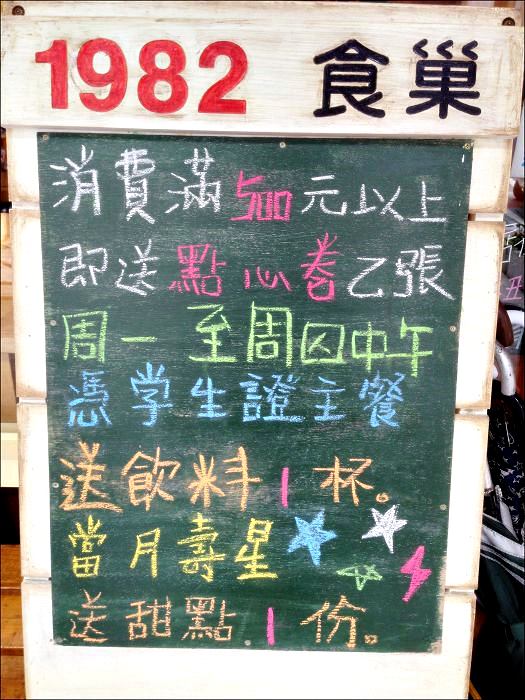 1982 食巢
消費滿500元以上
即送點心卷乙張
周一至周四中午
憑學生證主餐
送飲料1杯。
當月壽星
送甜點1份。